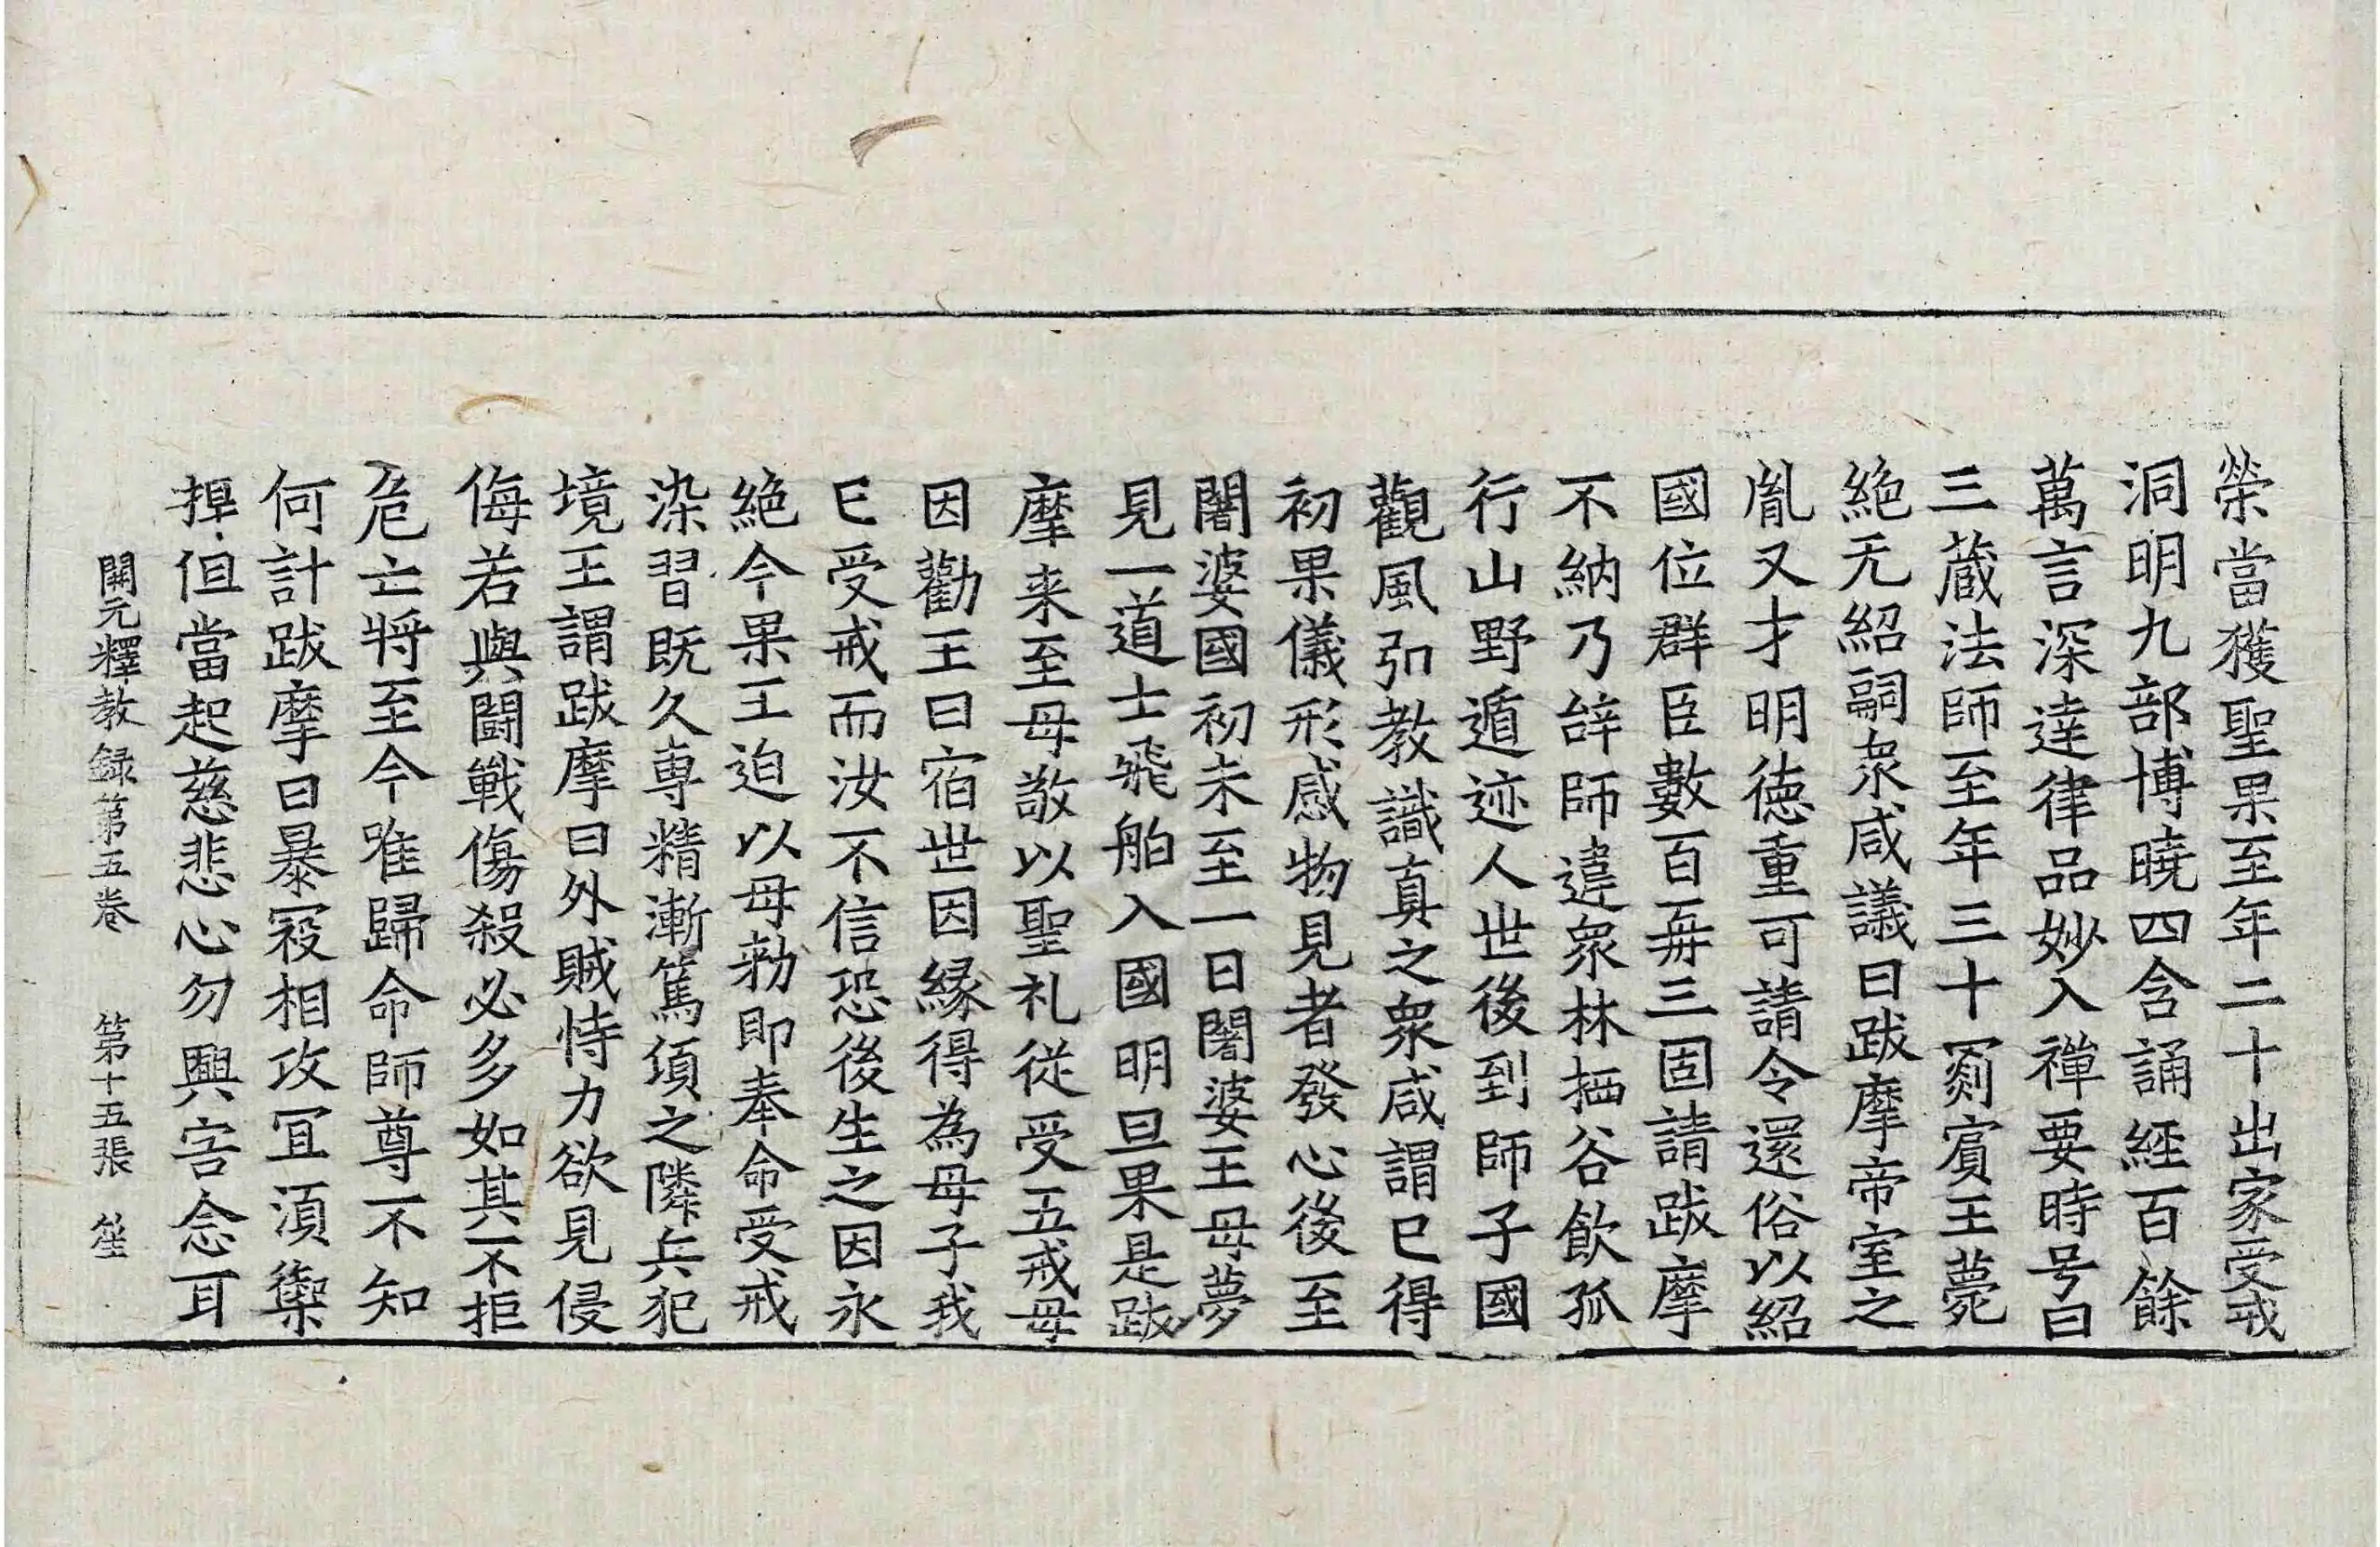 榮當獲聖果至年二十出家受戒
洞明九部博曉四含誦經百餘
萬言深達律品妙入禪要時号曰
三蔵法師至年三十罽賓王薨
絶无紹嗣衆咸議曰跋摩帝室之
胤又才明徳重可請令還俗以紹
國位群臣數百再三固請跋摩
不納乃辝師違衆林栖谷飲孤
行山野遁迹人世後到師子國
觀風弘教識真之衆咸謂已得
初果儀形感物見者發心後至
闍婆國初未至一日闍婆王母夢
見一道士飛舶入國明旦果是跋
摩来至母敬以聖礼從受五戒母
因勸王曰宿世因縁得為母子我
已受戒而汝不信恐後生之因永
絶今果王迫以母勑即奉命受戒
染習既久専精漸篤頃之隣兵犯
境王謂跋摩曰外賊恃力欲見侵
侮若與闘戰傷殺必多如其不拒
危亡将至今唯歸命師尊不知
何計跋摩曰暴寇相攻冝湏禦
捍但當起慈悲心勿興害念耳
開元釋教録第五巻 第十五張 笙